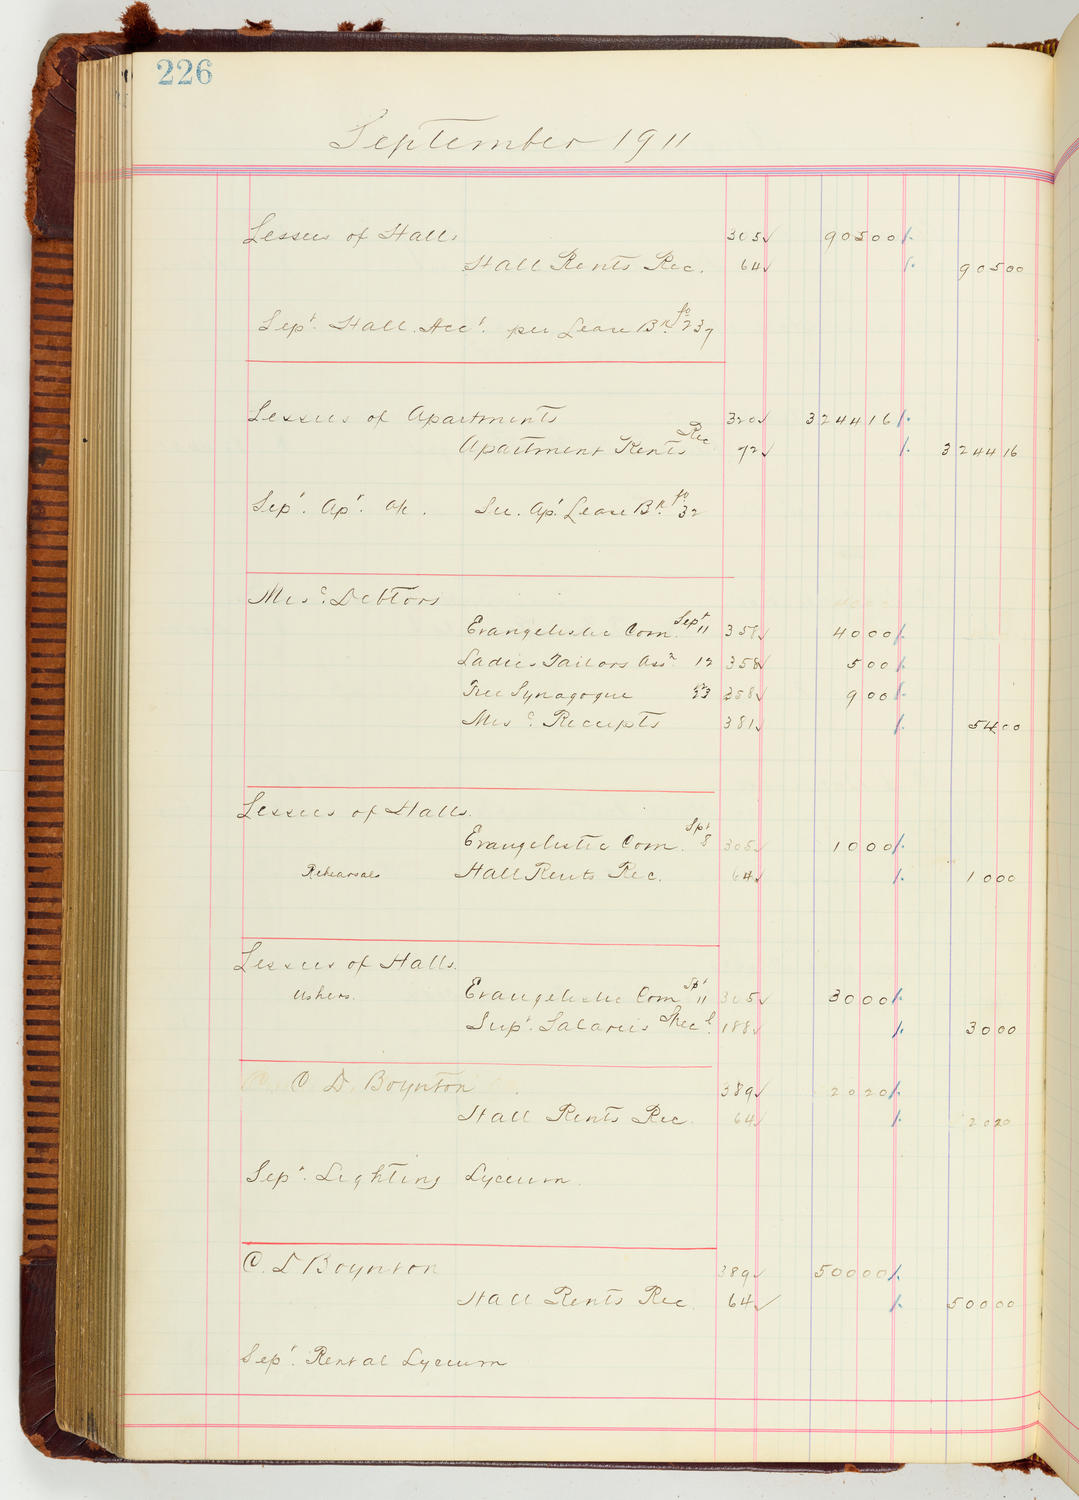 226
September 1911
Lessees of Halls 305 905 00
Hall Rents Rec. 64 905 00
Sept. Hall Acct. per Lease Bk. fo 237
Lessees of Apartments 320 3244 16
Apartment Rents Rec 72 3244 16
Sept. Apt. a/c. See Apt. Lease Bk. fo 32
Misc. Debtors
Evangelistic Com. Sept 11 358 40 00
Ladies Tailors Assn. 12 358 5 00
Free Synagogue 23 358 9 00
Misc. Receipts 381 54 00
Lessees of Halls.
Evangelistic Com. Spt 8 305 10 00
Rehearsals Hall Rents Rec. 64 10 00
Lessees of Halls.
Ushers. Evangelistic Com Spt 11 305 30 00
Supt. Salaries Specl. 188 30 00
C. D. Boynton 389 20 20
Hall Rents Rec. 64 20 20
Sept. Lighting Lyceum.
C. D Boynton 389 500 00
Hall Rents Rec. 64 500 00
Sept. Rental Lyceum